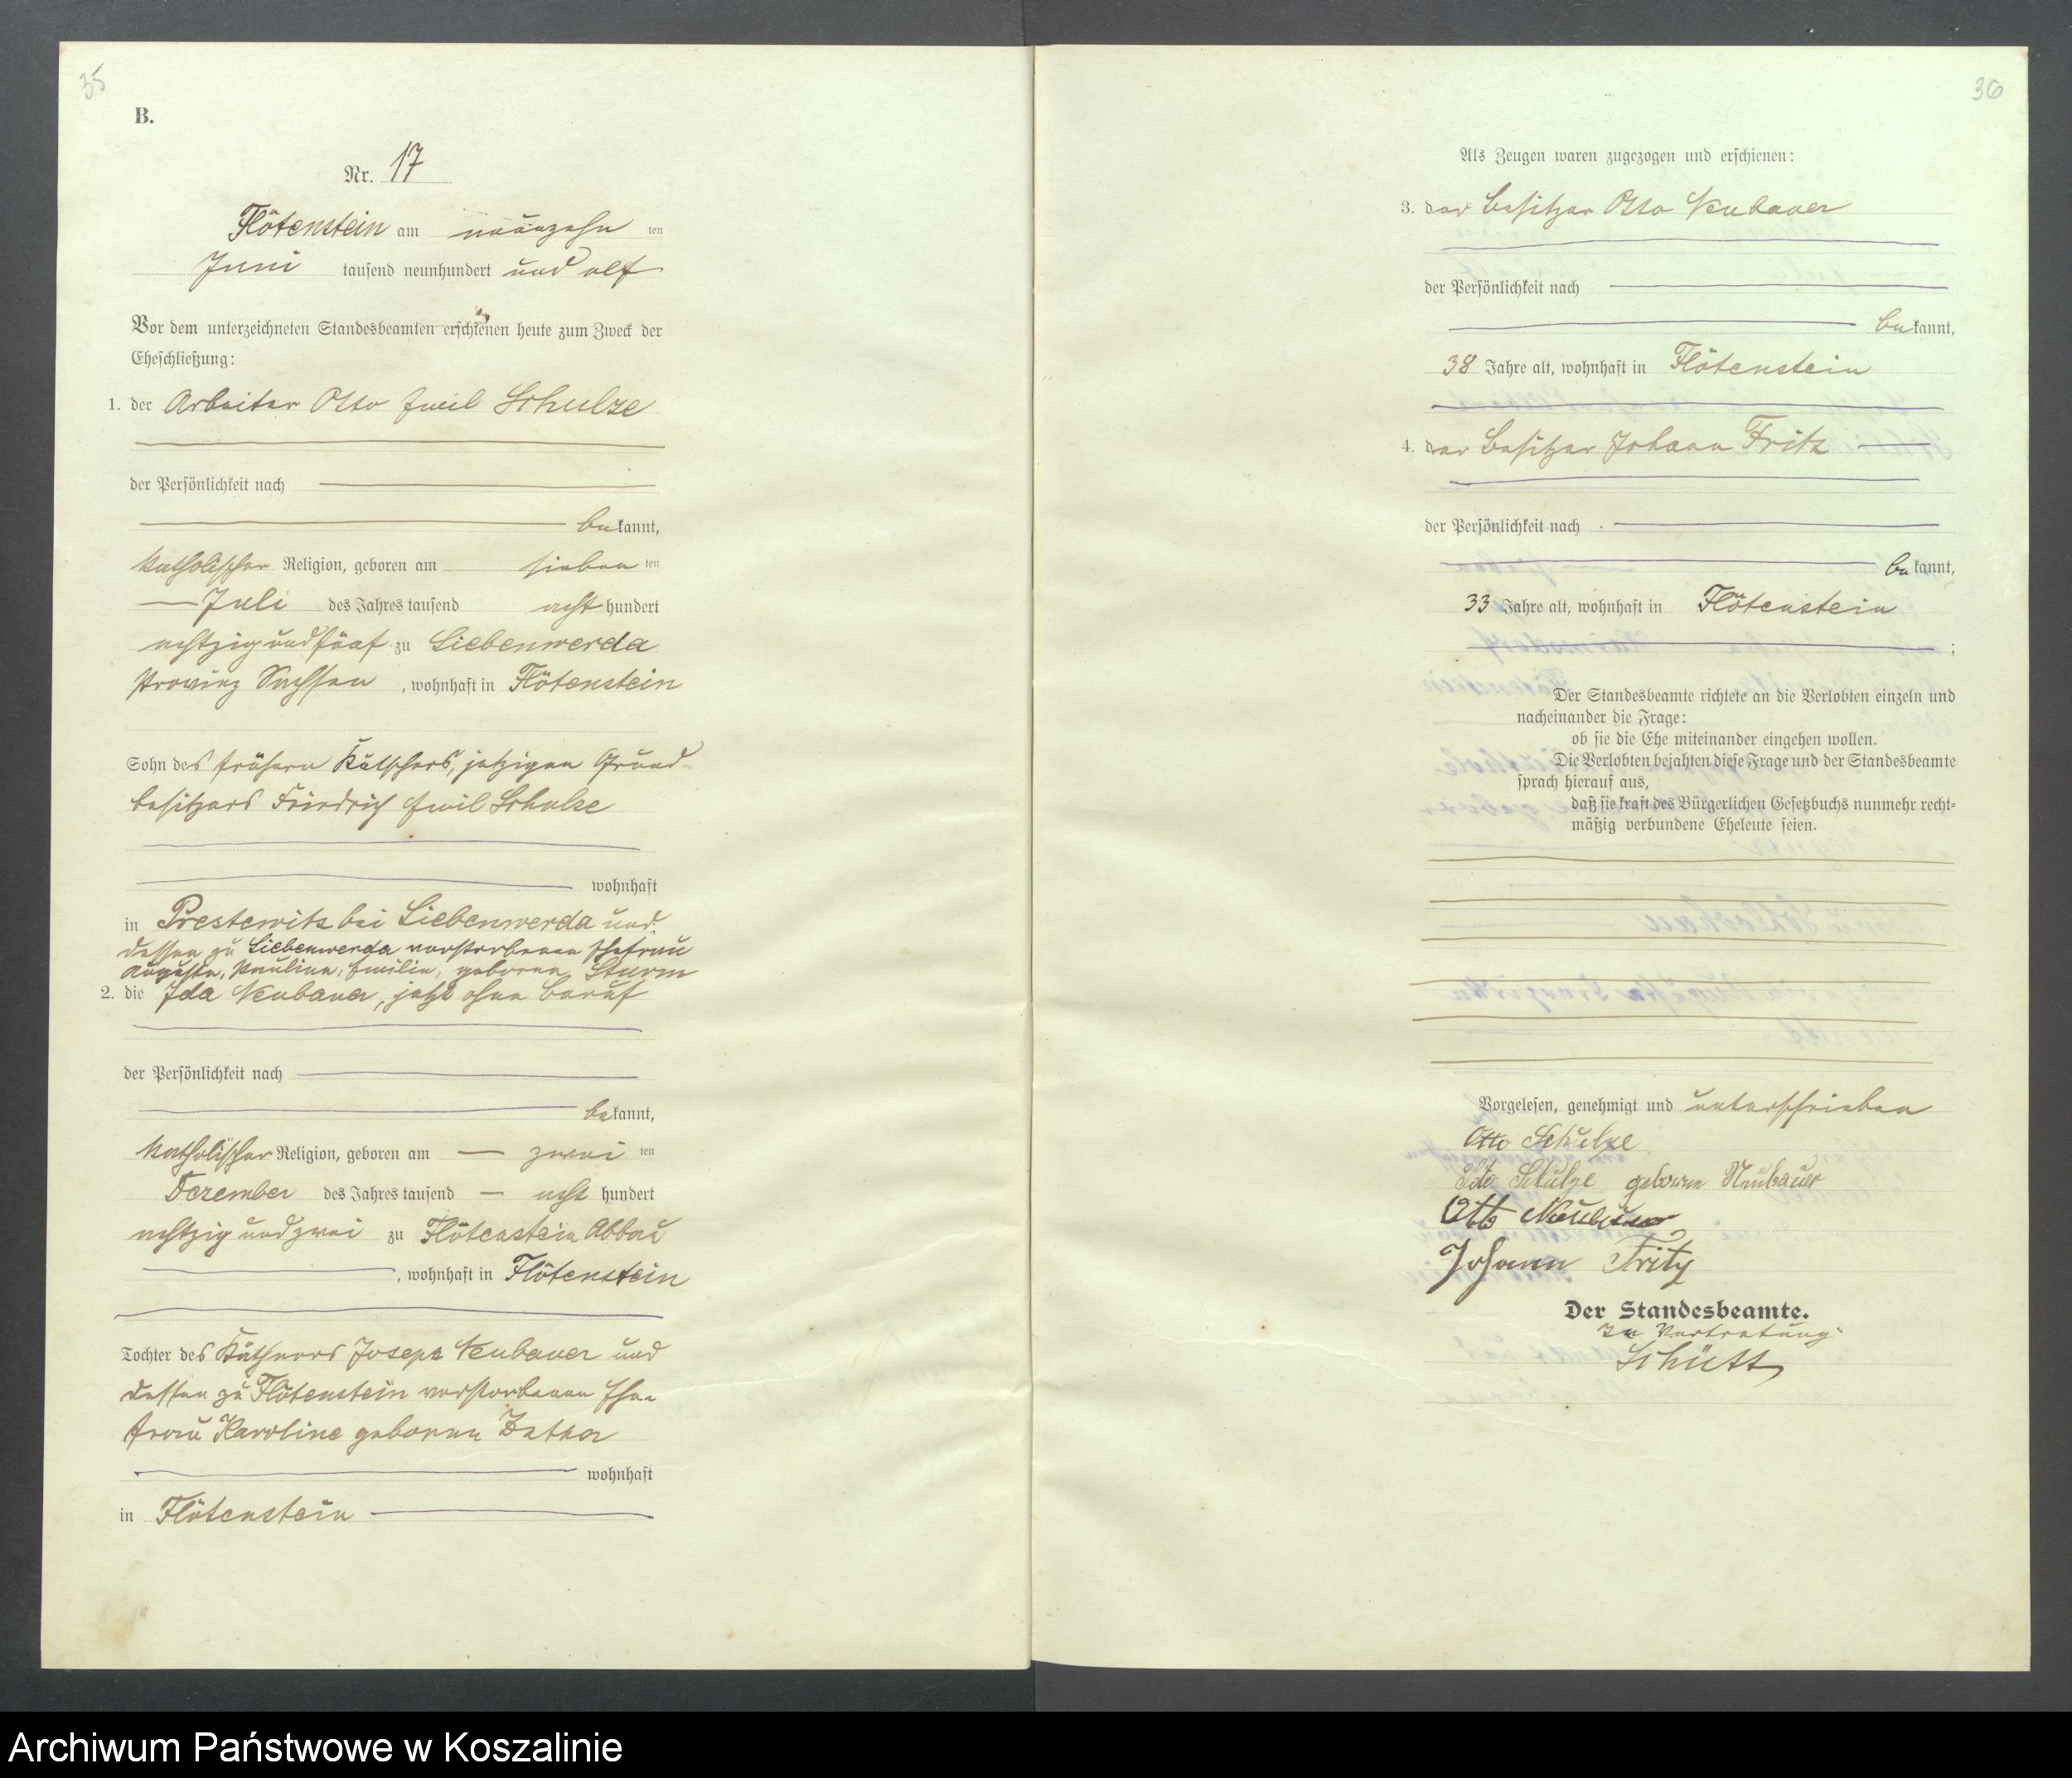 35
B.
Nr. 17
Flötenstein am neunzehn ten
Juni tausend neunhundert und elf
Vor dem unterzeichneten Standesbeamten erschienen heute zum Zweck der
Eheschließung:
1. der Arbeiter Otto Emil Schulze
der Persönlichkeit nach
bekannt,
katholischer Religion, geboren am sieben ten
Juli des Jahres tausend acht hundert
achtzig und fünf zu Liebenwerda
Provinz Sachsen, wohnhaft in Flötenstein
Sohn des frühern Kutschers, jetzigen Grund-
besitzers Friedrich Emil Schulze
wohnhaft
in Prestewitz bei Liebenwerda und
dessen zu Liebenwerda verstorbenen Ehefrau
Auguste, Pauline, Emilie, geborene Sturm
2. die Ida Neubauer, jetzt ohne Beruf
der Persönlichkeit nach
bekannt,
katholischer Religion, geboren am zwei ten
Dezember des Jahres tausend acht hundert
achtzig und zwei zu Flötenstein Abbau
, wohnhaft in Flötenstein
Tochter des Käthners Joseph Neubauer und
dessen zu Flötenstein verstorbenen Ehe-
frau Karoline geborene
wohnhaft
in Flötenstein
36
Als Zeugen waren zugezogen und erschienen:
3. der Besitzer Otto Neubauer
der Persönlichkeit nach
bekannt,
38 Jahre alt, wohnhaft in Flötenstein
4. der Besitzer Johann Fritz
der Persönlichkeit nach
bekannt,
33 Jahre alt, wohnhaft in Flötenstein
;
Der Standesbeamte richtete an die Verlobten einzeln und
nacheinander die Frage:
ob sie die Ehe miteinander eingehen wollen.
Die Verlobten bejahten diese Frage und der Standesbeamte
sprach hierauf aus,
daß sie kraft des Bürgerlichen Gesetzbuchs nunmehr recht-
mäßig verbundene Eheleute seien.
Vorgelesen, genehmigt und unterschrieben
Otto Schulze
Ida Schulze geborene Neubauer
Otto Neubauer
Johann Fritz
Der Standesbeamte.
In Vertretung
Schütt
Archiwum Państwowe w Koszalinie